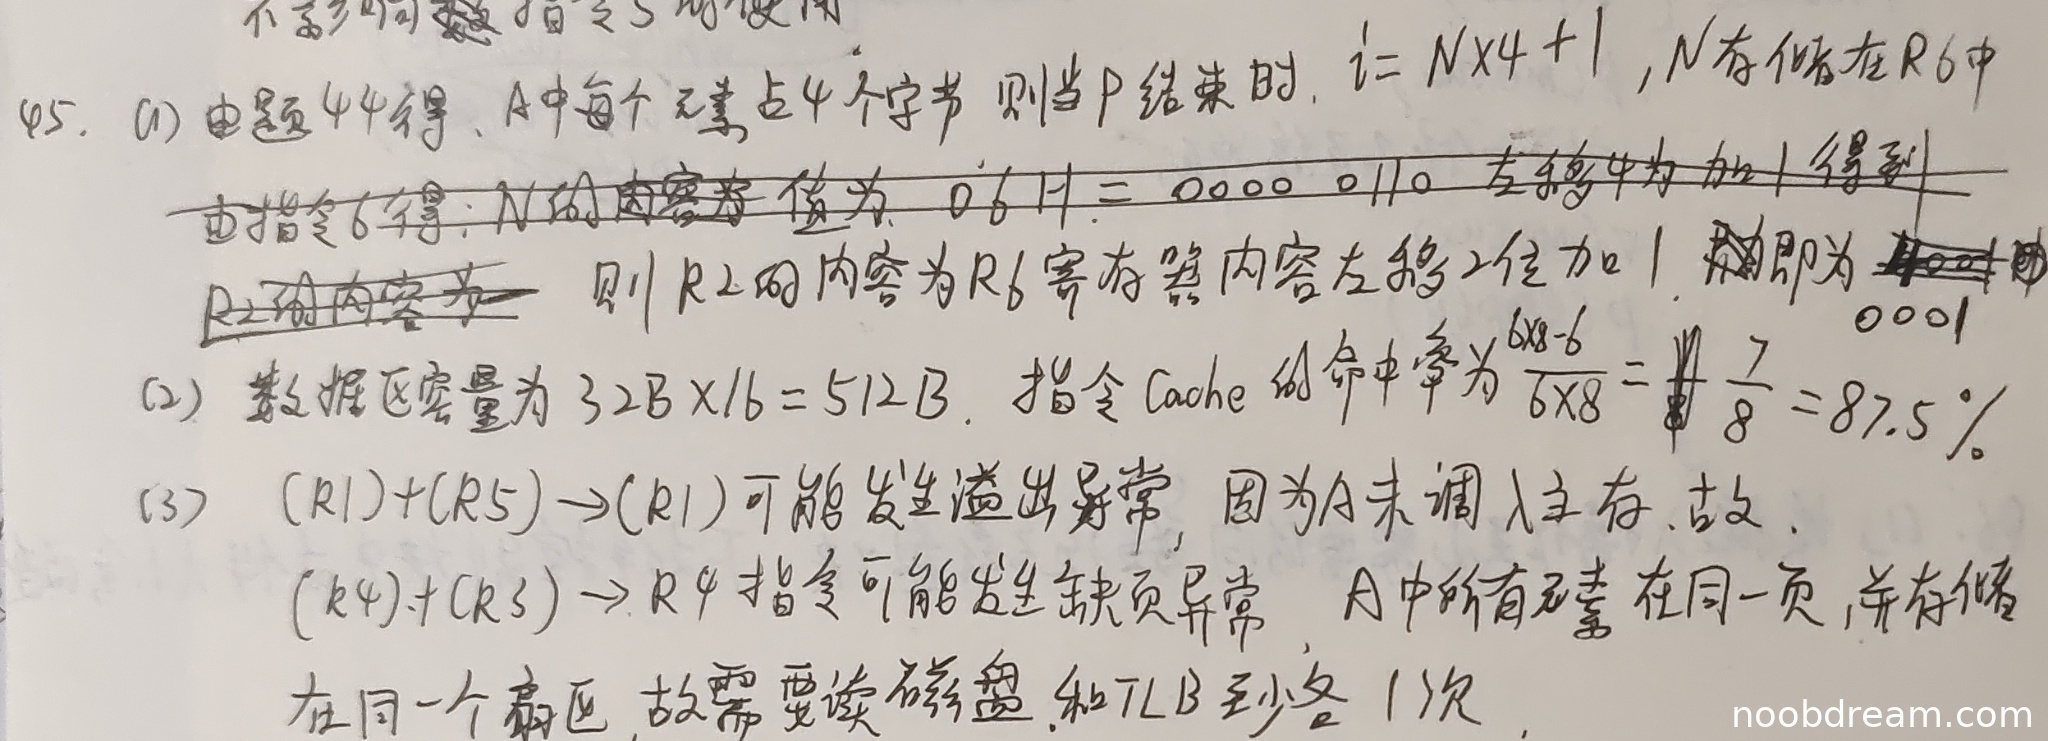 不影响 指令5的使用
45. (1) 由题44得、A中每个元素占4个字节 则当P结束时, i= N×4+1 ,N存储在R6中
由指令6得: N的内容为 值为 06H = 0000 0110 左移4为 加1得到
R2的内容为 则R2的内容为R6寄存器内容左移2位加1. 即为
0001
(2) 数据区容量为 32B×16=512B. 指令Cache的命中率为 6×8-6/6×8 = 7/8 =87.5%
(3) (R1)+(R5)→(R1)可能发生溢出异常, 因为A未调入主存.故.
(R4)+(R3)→R4 指令可能发生缺页异常, A中所有元素在同一页,并存储
在同一个扇区,故需要读磁盘.和TLB至少各1次.
noobdream.com